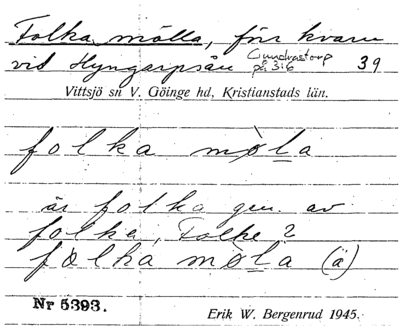 Folka mölla, för kvarn
vid Hyngarpsån Gundrastorp på 3:6 39
Vittsjö sn V. Göinge hd, Kristianstads län.
folka möla
är folka gen. av
folke, Folke?
folka möla (ä)
Nr 5393. Erik W. Bergenrud 1945.